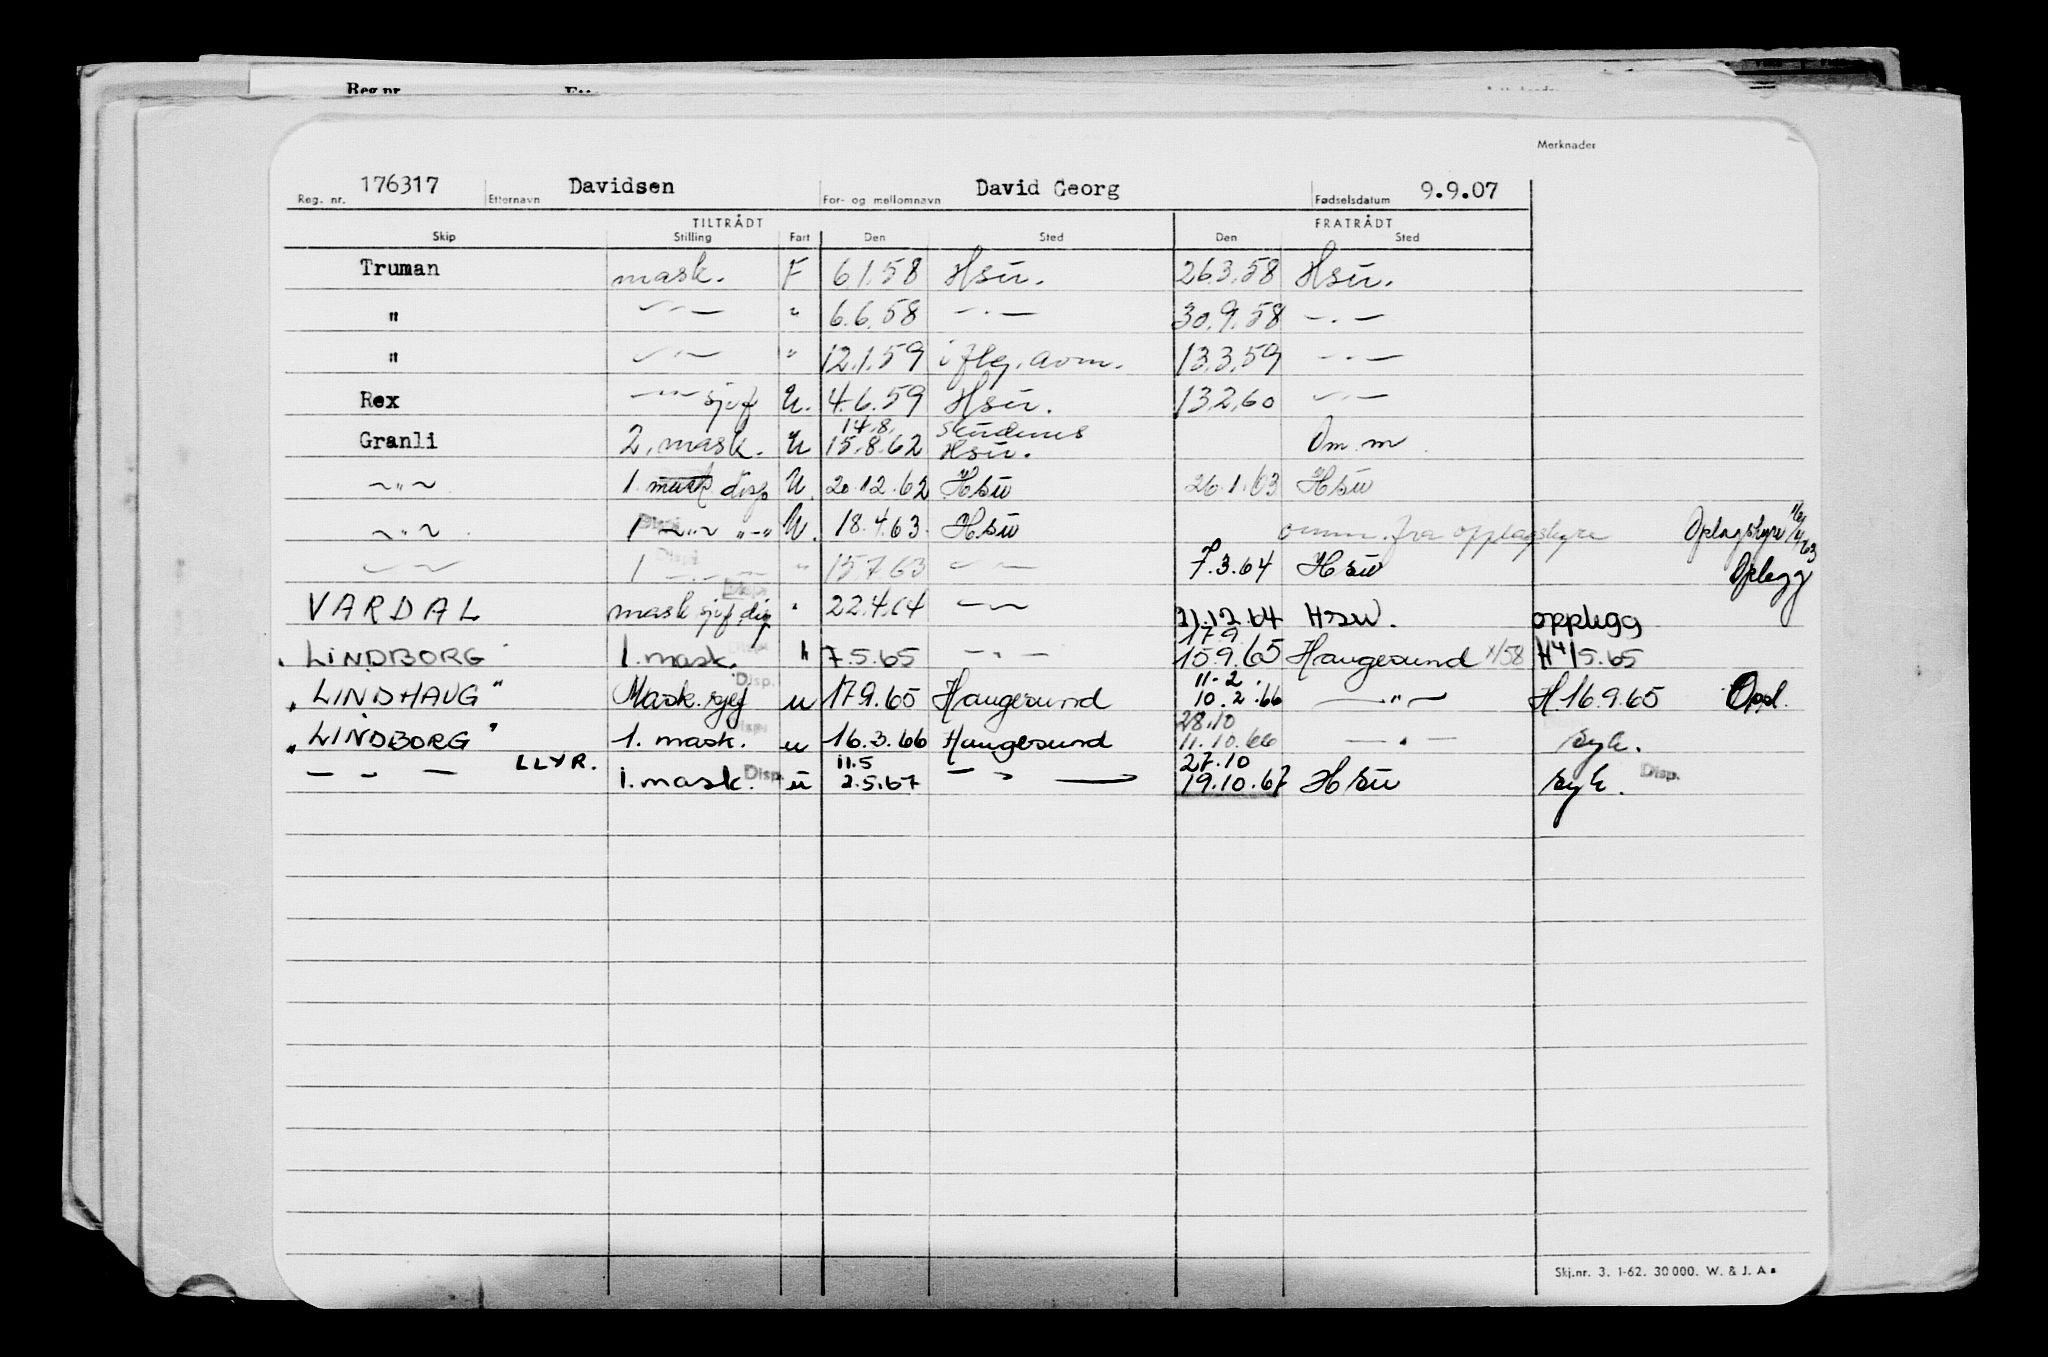 Reg.nr.
Merknader
176317 Davidsen David Georg 9.9.07
Reg. nr. Etternavn For- og mellomnavn Fødselsdatum
TILTRÅDT FRATRÅDT
Skip Stilling Fart Den Sted Den Sted
Truman mask. F 6.1.58 Hsu. 26.3.58 Hsu.
" — " — " 6.6.58 — . — 30.9.58 — . —
" — " — " 12.1.59 iflg. aom. 13.3.59 — . —
Rex — " — sjef U. 4.6.59 Hsu. 13.2.60 — " —
14.8. Skudenes
Granli 2. mask. U 15.8.62 Hsu. Om.m
~ " ~ 1. mask disp U. 20.12.62 Hsu 26.1.63 Hsu
~ " ~ 1 Disp ~ " ~ " - " U. 18.4.63. Hsu omm. fra opplagshyre Oplagshyre
~ ~ 1 Disp — " — " 15.7.63 — — 7.3.64 Hsu Oplegg
VARDAL mask sjef disp " 22.4.64 — ~ 21.12.64 Hsu. opplegg
17.9
LINDBORG 1. mask. " 7.5.65 — " — 15.9.65 Haugesund 1/58 H 4/5.65
11-2.
"LINDHAUG" Mask. sjef Disp. u 17.9.65 Haugesund 10.2.66 — " — H. 16.9.65 Oppl.
28.10
"LINDBORG" 1. mask. Disp. u 16.3.66 Haugesund 11.10.66 — . — syk.
LLYR. 11.5 27.10
— " — 1. mask. Disp. u 2.5.67 — " — 19.10.67 Hsu syk. Disp.
Skj.nr. 3. 1-62. 30 000. W. & J. A.s